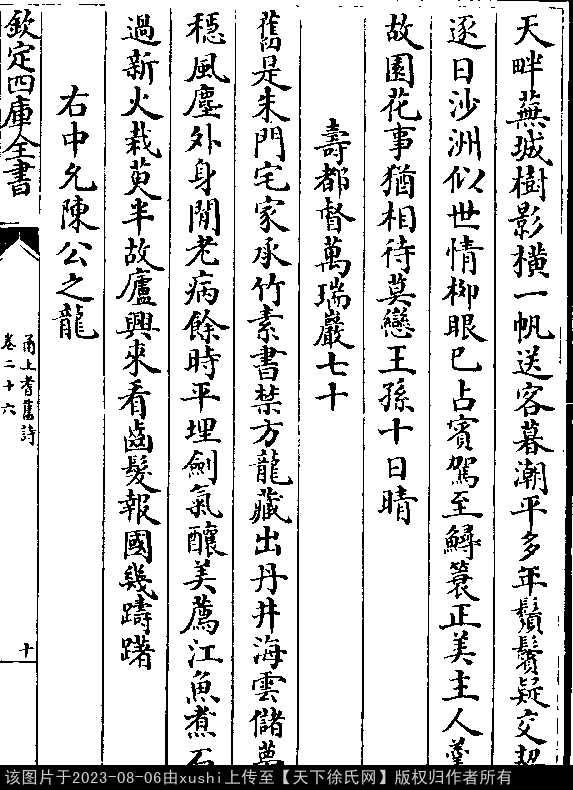 天畔蕪城樹影橫一帆送客暮潮平多年鬚鬢疑交
逐日沙洲似世情柳眼已占賓駕至鱘簑正美主人
故園花事猶相待莫戀王孫十日晴
壽都督萬瑞巖七十
舊是朱門宅家承竹素書禁方龍藏出丹井海雲儲萬
穩風塵外身閒老病餘時平埋劍氣釀美薦江魚煮石
過新火栽萸半故廬興來看齒髮報國幾躊躇
右中允陳公之龍
欽定四庫全書
甬上耆舊詩
卷二十六
十
该图片于2023-08-06由xushi上传至【天下徐氏网】版权归作者所有